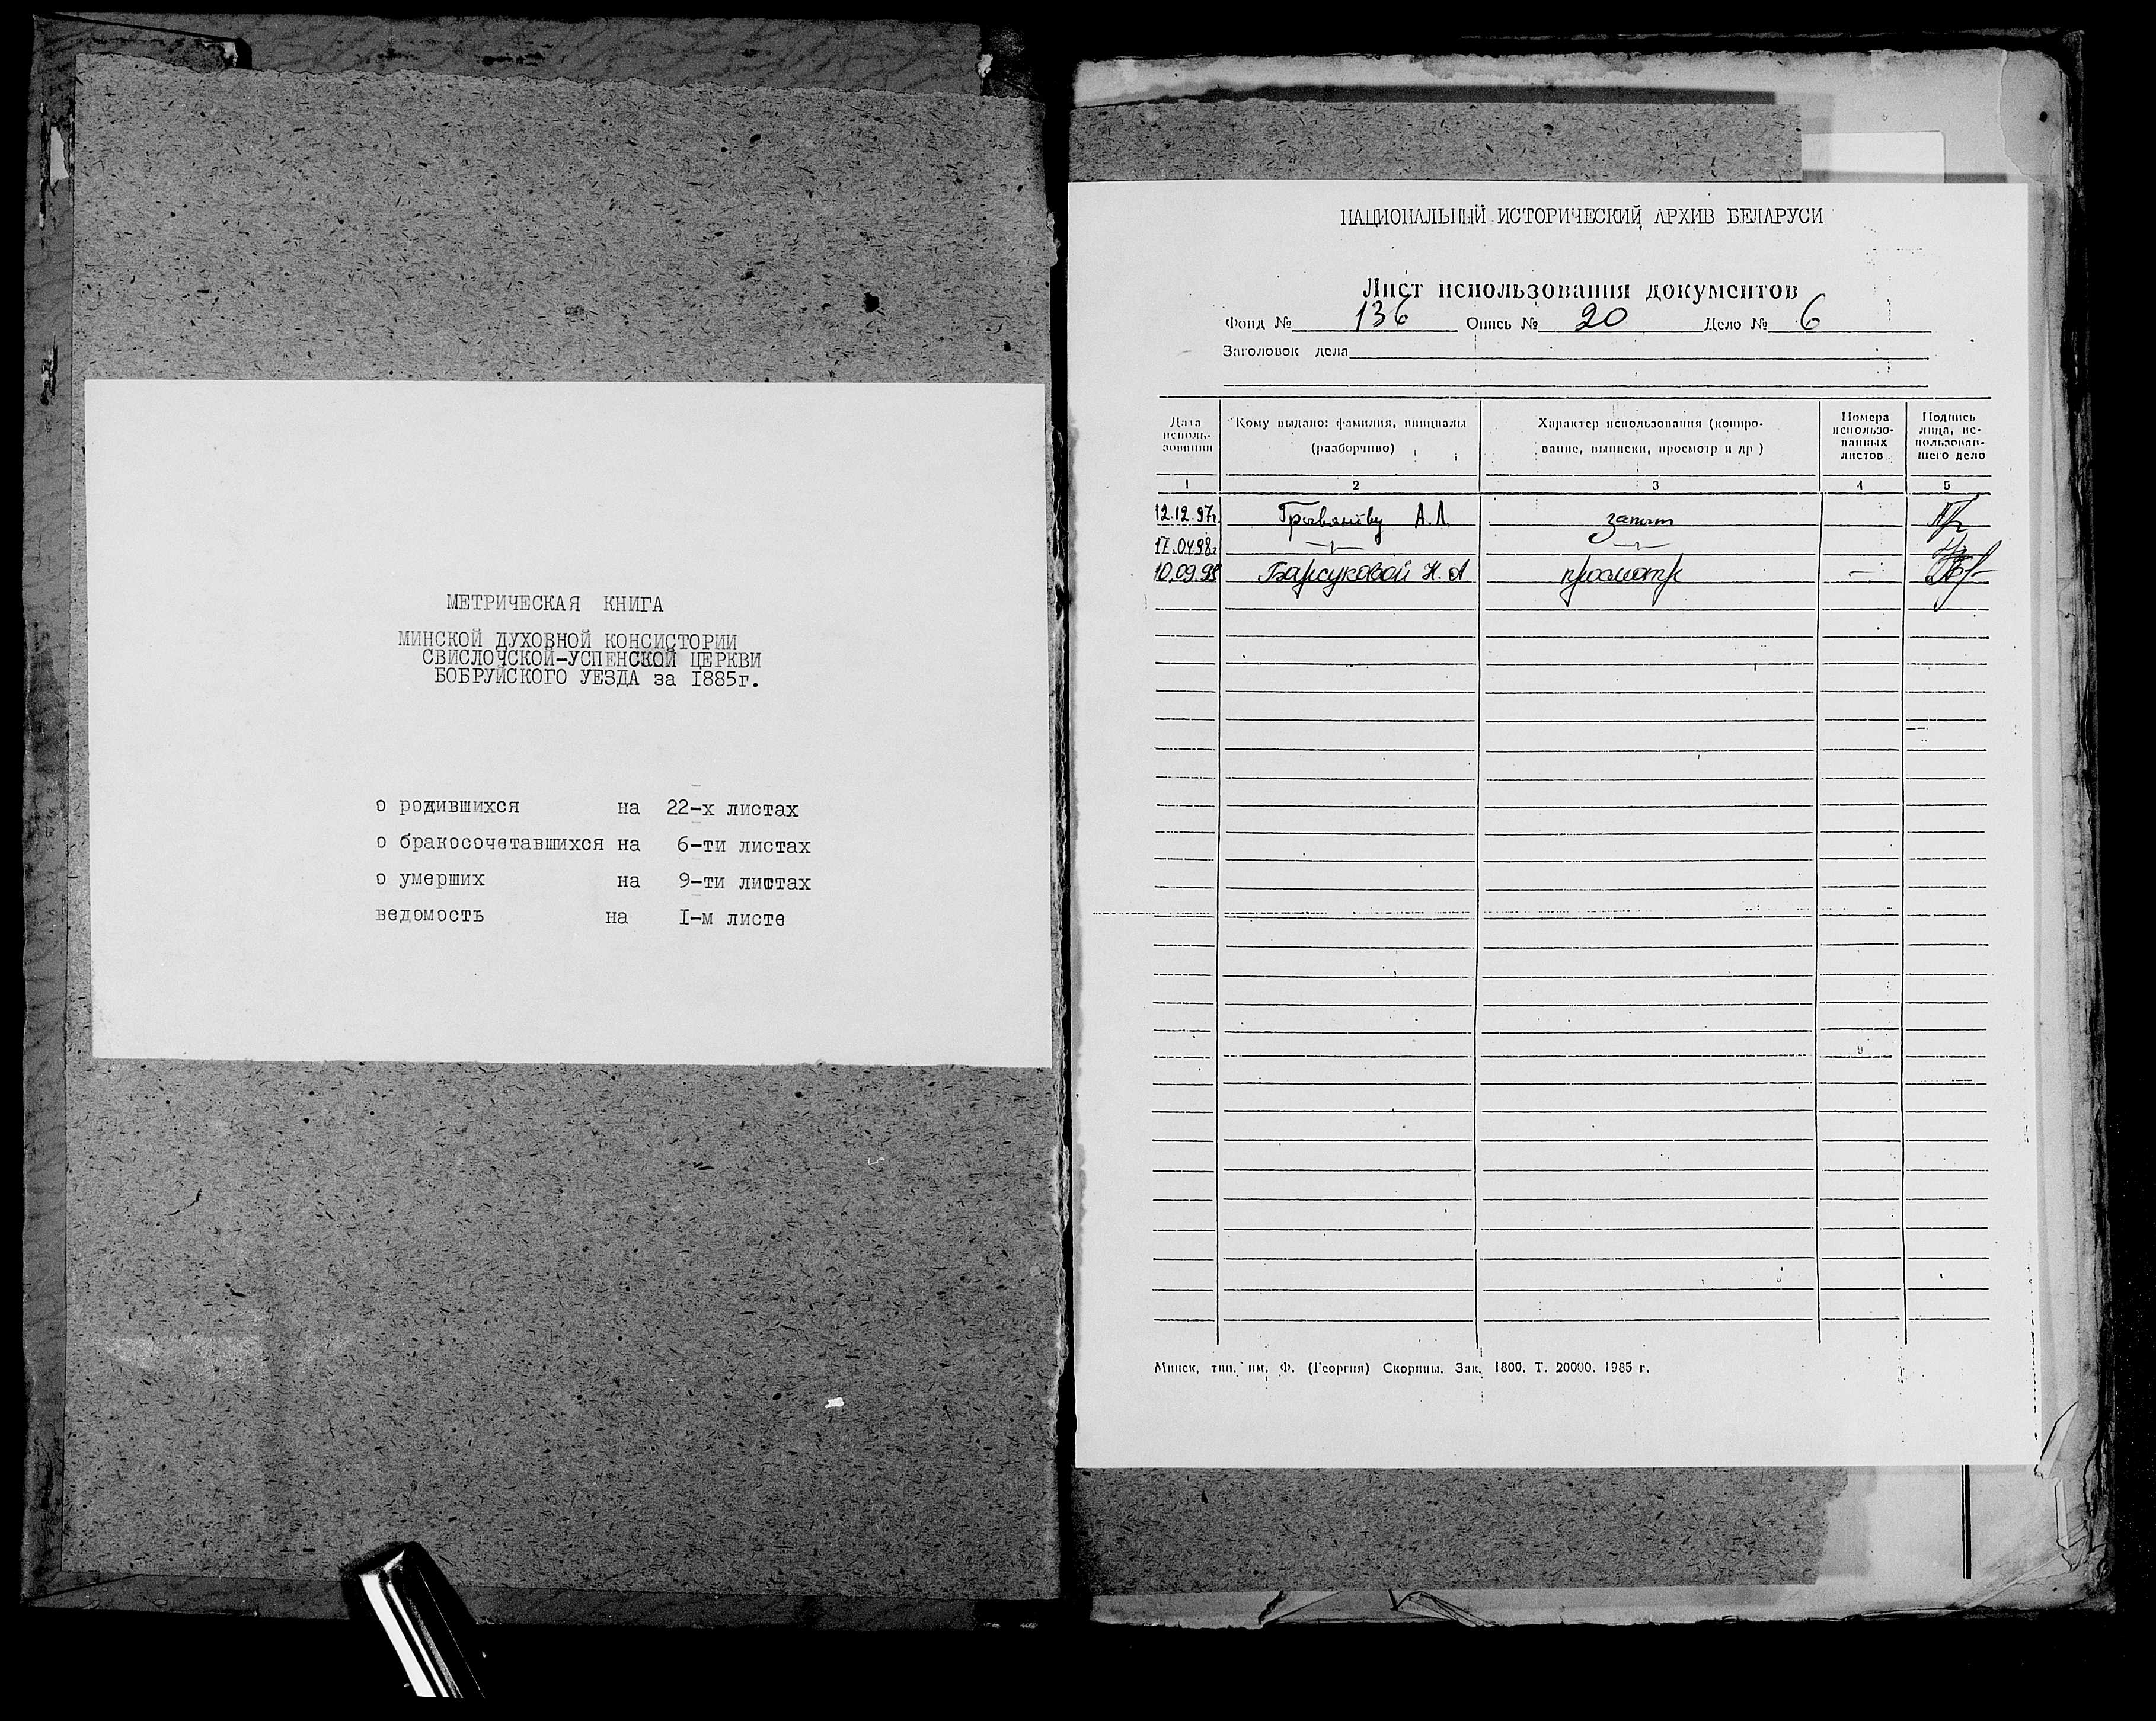 МЕТРИЧЕСКАЯ КНИГА
МИНСКОЙ ДУХОВНОЙ КОНСИСТОРИИ
СВИСЛОЧСКОЙ-УСПЕНСКОЙ ЦЕРКВИ
БОБРУЙСКОГО УЕЗДА за I885г.
о родившихся на 22-х листах
о бракосочетавшихся на 6-ти листах
о умерших на 9-ти листах
ведомость на I-м листе
НАЦИОНАЛЬНЫЙ ИСТОРИЧЕСКИЙ АРХИВ БЕЛАРУСИ
Лист использования документов
Фонд № 136 Опись № 20 Дело № 6
Заголовок дела
Дата исполь-зования
Кому выдано: фамилия, инициалы (разборчиво)
Характер использования (копиро-вание, выписки, просмотр и др )
Номера использо-ванных листов
Подпись лица, ис-пользовав-шего дело
1 2 3 4 5
12.12.97г. А.Л.
17.04.98г.
10.09.98 Барсуковой Н.А просмотр —
Минск, тип. им. Ф. (Георгия) Скорины. Зак. 1800. Т. 20000. 1985 г.